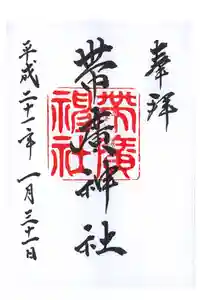 奉拝
帯廣神社
帯廣神社
平成二十一年一月三十一日